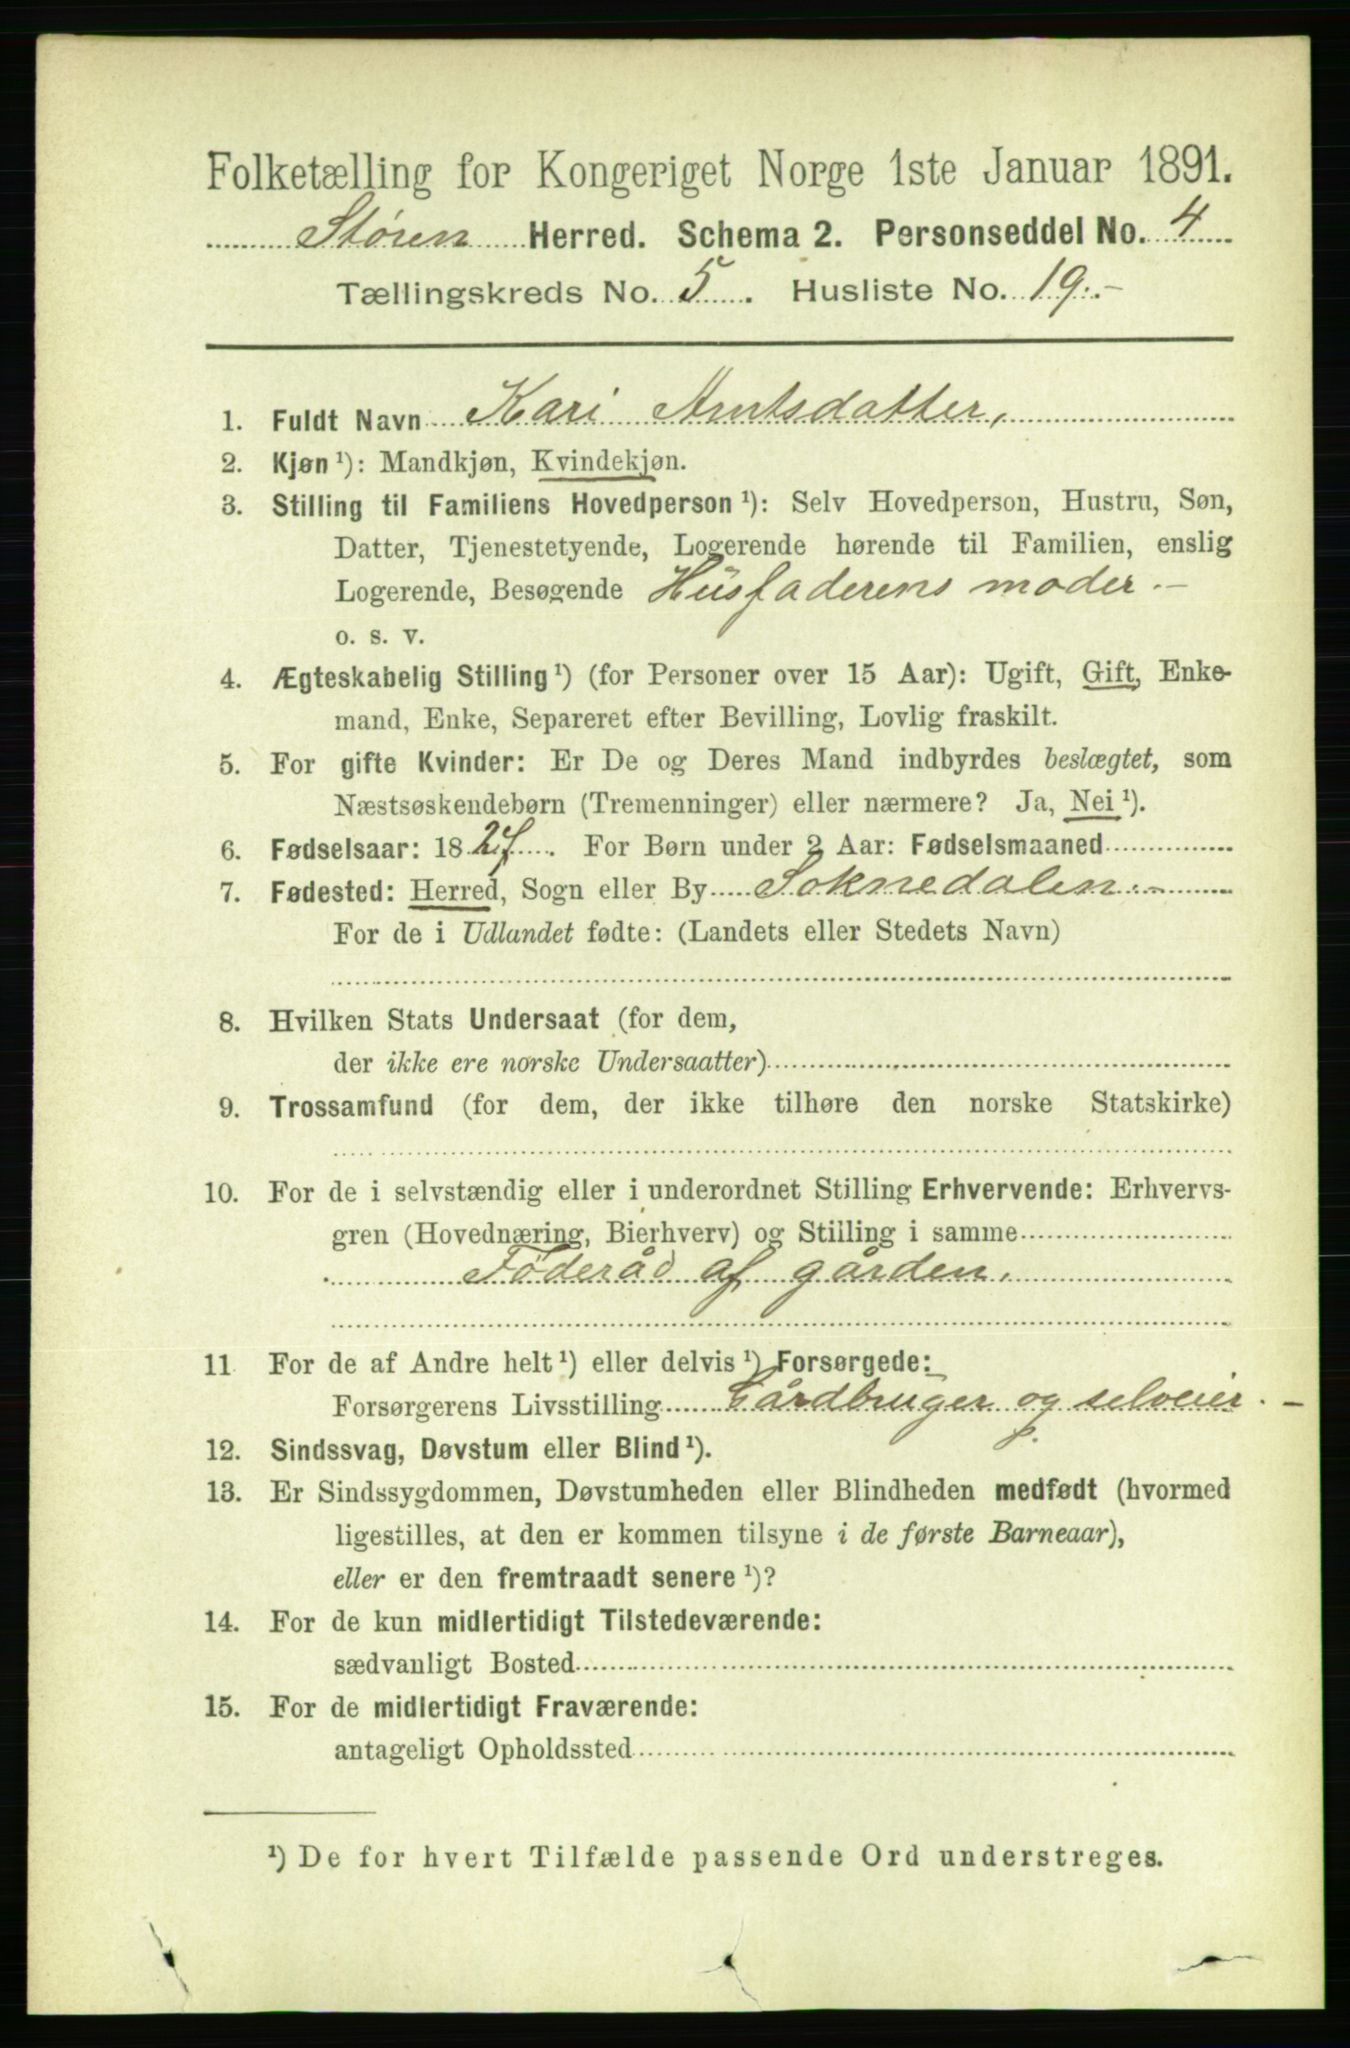 Folketælling for Kongeriget Norge 1ste Januar 1891.
Støren Herred. Schema 2. Personseddel No. 4
Tællingskreds No. 5. Husliste No. 19.-
1. Fuldt Navn Kari Arntsdatter,
2. Kjøn ¹): Mandkjøn, Kvindekjøn.
3. Stilling til Familiens Hovedperson ¹): Selv Hovedperson, Hustru, Søn,
Datter, Tjenestetyende, Logerende hørende til Familien, enslig
Logerende, Besøgende Husfaderens moder.-
o. s. v.
4. Ægteskabelig Stilling ¹) (for Personer over 15 Aar): Ugift, Gift, Enke-
mand, Enke, Separeret efter Bevilling, Lovlig fraskilt.
5. For gifte Kvinder: Er De og Deres Mand indbyrdes beslægtet, som
Næstsøskendebørn (Tremenninger) eller nærmere? Ja, Nei ¹).
6. Fødselsaar: 1827. For Børn under 2 Aar: Fødselsmaaned
7. Fødested: Herred, Sogn eller By Soknedalen.-
For de i Udlandet fødte: (Landets eller Stedets Navn)
8. Hvilken Stats Undersaat (for dem,
der ikke ere norske Undersaatter)
9. Trossamfund (for dem, der ikke tilhøre den norske Statskirke)
10. For de i selvstændig eller i underordnet Stilling Erhvervende: Erhvervs-
gren (Hovednæring, Bierhverv) og Stilling i samme
Föderåd af gården.
11 For de af Andre helt ¹) eller delvis ¹) Forsørgede:
Forsørgerens Livsstilling Gårdbruger og selveier.-
12. Sindssvag, Døvstum eller Blind ¹).
13. Er Sindssygdommen, Døvstumheden eller Blindheden medfødt (hvormed
ligestilles, at den er kommen tilsyne i de første Barneaar),
eller er den fremtraadt senere ¹)?
14. For de kun midlertidigt Tilstedeværende:
sædvanligt Bosted
15. For de midlertidigt Fraværende:
antageligt Opholdssted
¹) De for hvert Tilfælde passende Ord understreges.